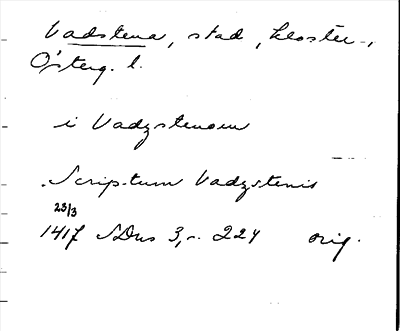 Vadstena, stad, kloster,
Österg. l.
i Vadzstenom
Scriptum Vadzstenis
23/3
1417 SDns 3, s. 224 orig.